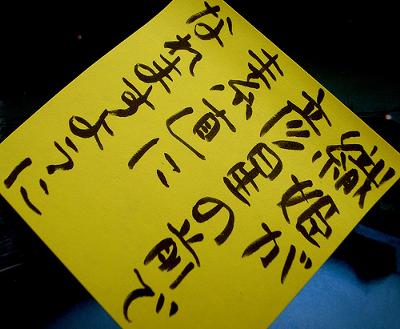 織姫が
彦星の前で
素直に
なれますように